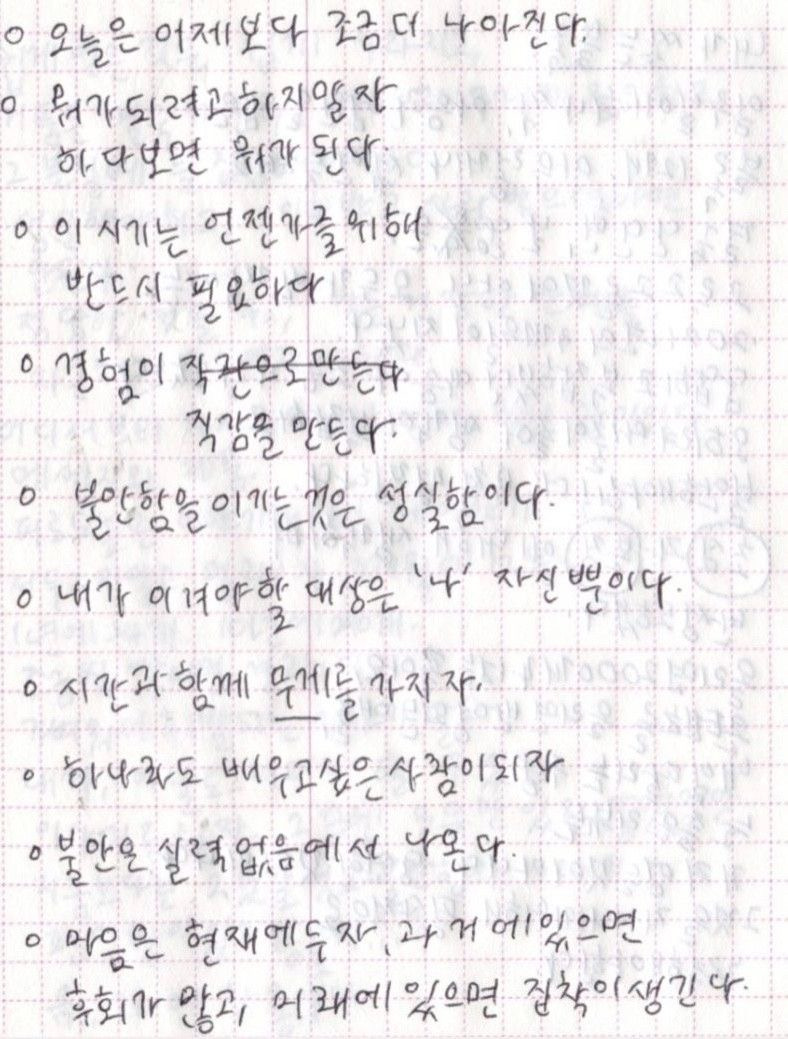 ○ 오늘은 어제보다 조금더 나아진다.
○ 뭐가되려고하지말자
하다보면 뭐가 된다.
○ 이 시기는 언젠가를위해
반드시 필요하다
○ 경험이 직관으로만든다
직감을 만든다.
○ 불안함을 이기는것은 성실함이다.
○ 내가 이겨야할 대상은 '나' 자신뿐이다.
○ 시간과 함께 무게를 가지자.
○ 하나라도 배우고싶은사람이되자
○ 불안은 실력없음에서 나온다.
○ 마음은 현재에두자, 과거에있으면
후회가 많고, 미래에 있으면 집착이생긴다.